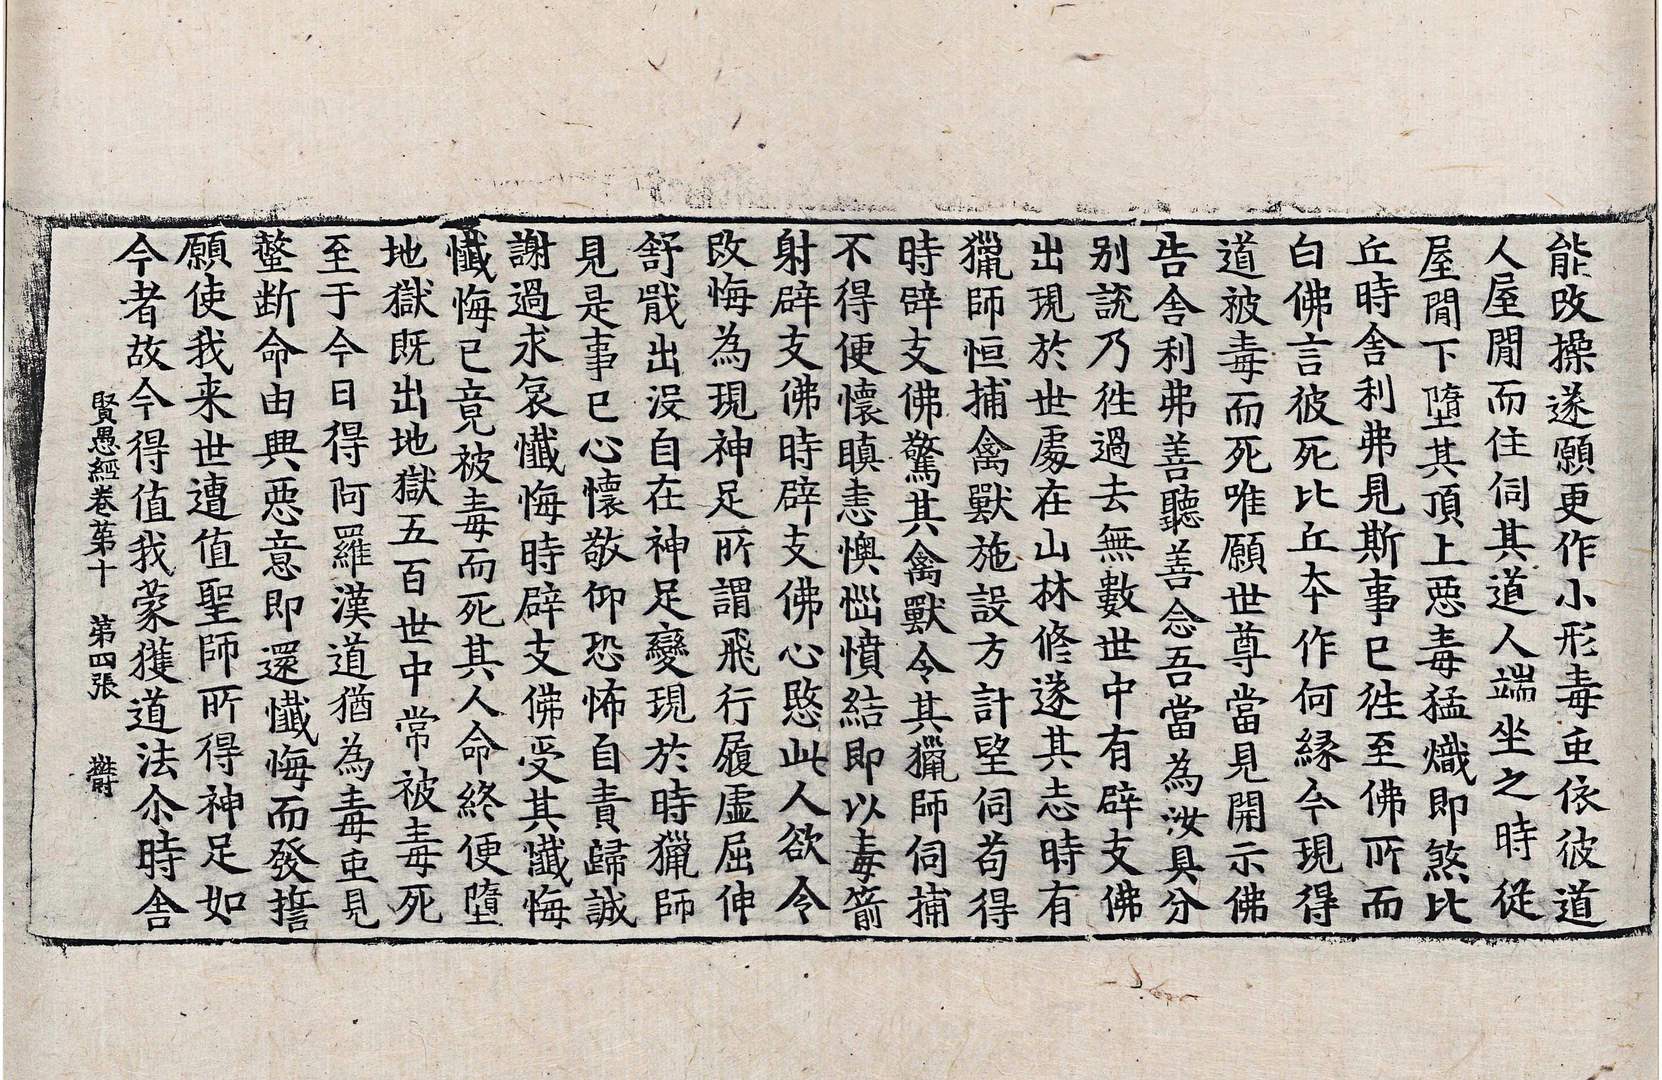 能改操遂願更作小形毒虫依彼道
人屋閒而住伺其道人端坐之時從
屋閒下墮其頂上惡毒猛熾即煞比
丘時舍利弗見斯事已徃至佛所而
白佛言彼死比丘夲作何縁今現得
道被毒而死唯願世尊當見開示佛
告舍利弗善聽善念吾當為汝具分
别說乃徃過去無數世中有辟支佛
出現於世處在山林修遂其志時有
獵師恒捕禽獸施設方計望伺苟得
時辟支佛驚其禽獸令其獵師伺捕
不得便懷瞋恚懊惱憤結即以毒箭
射辟支佛時辟支佛心愍此人欲令
改悔為現神足所謂飛行履虛屈伸
舒戢出没自在神足變現於時獵師
見是事已心懷敬仰恐怖自責歸誠
謝過求哀懺悔時辟支佛受其懺悔
懺悔已竟被毒而死其人命終便墮
地獄既出地獄五百世中常被毒死
至于今日得阿羅漢道猶為毒虫見
螫斷命由興惡意即還懺悔而發誓
願使我来世遭值聖師所得神足如
今者故今得值我蒙獲道法尒時舍
賢愚經卷苐十　苐四張　欝